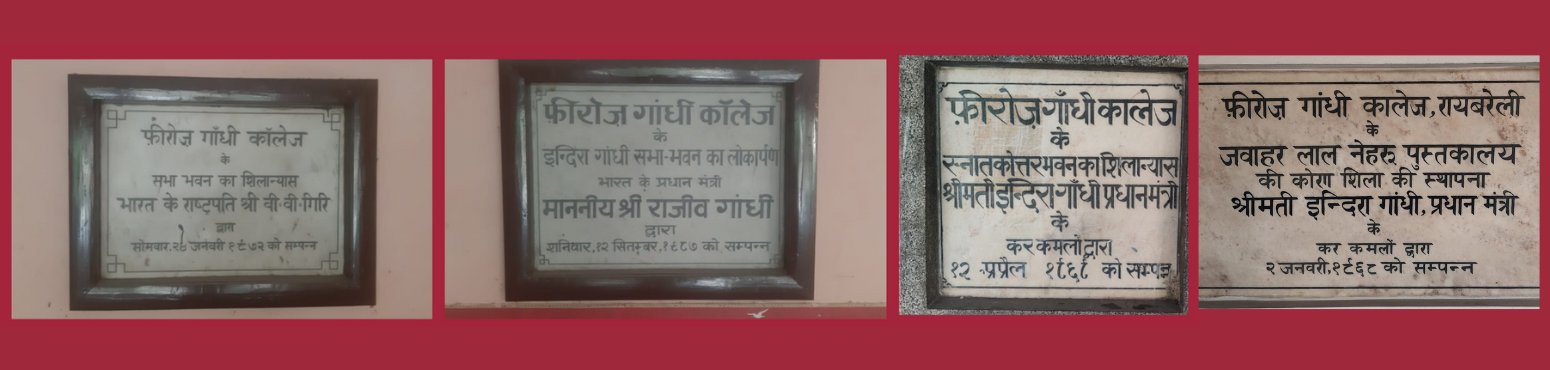 फ़ीरोज़ गाँधी कॉलेज
के
सभा भवन का शिलान्यास
भारत के राष्ट्रपति श्री वी·वी·गिरि
द्वारा
सोमवार, जनवरी १९७२ को सम्पन्न
फ़ीरोज़ गांधी कॉलेज
के
इन्दिरा गांधी सभा-भवन का लोकार्पण
भारत के प्रधान मंत्री
माननीय श्री राजीव गांधी
द्वारा
शनिवार,१२ सितम्बर,१९८७ को सम्पन्न
फ़ीरोज़ गाँधी कालेज
के
स्नातकोत्तर भवन का शिलान्यास
श्रीमती इन्दिरा गाँधी प्रधान मंत्री
के
कर कमलों द्वारा
१२ को सम्पन्न
फ़ीरोज़ गांधी कालेज,रायबरेली
के
जवाहर लाल नेहरू पुस्तकालय
की कोण शिला की स्थापना
श्रीमती इन्दिरा गांधी,प्रधान मंत्री
के
कर कमलों द्वारा
२ जनवरी,१९६८ को सम्पन्न